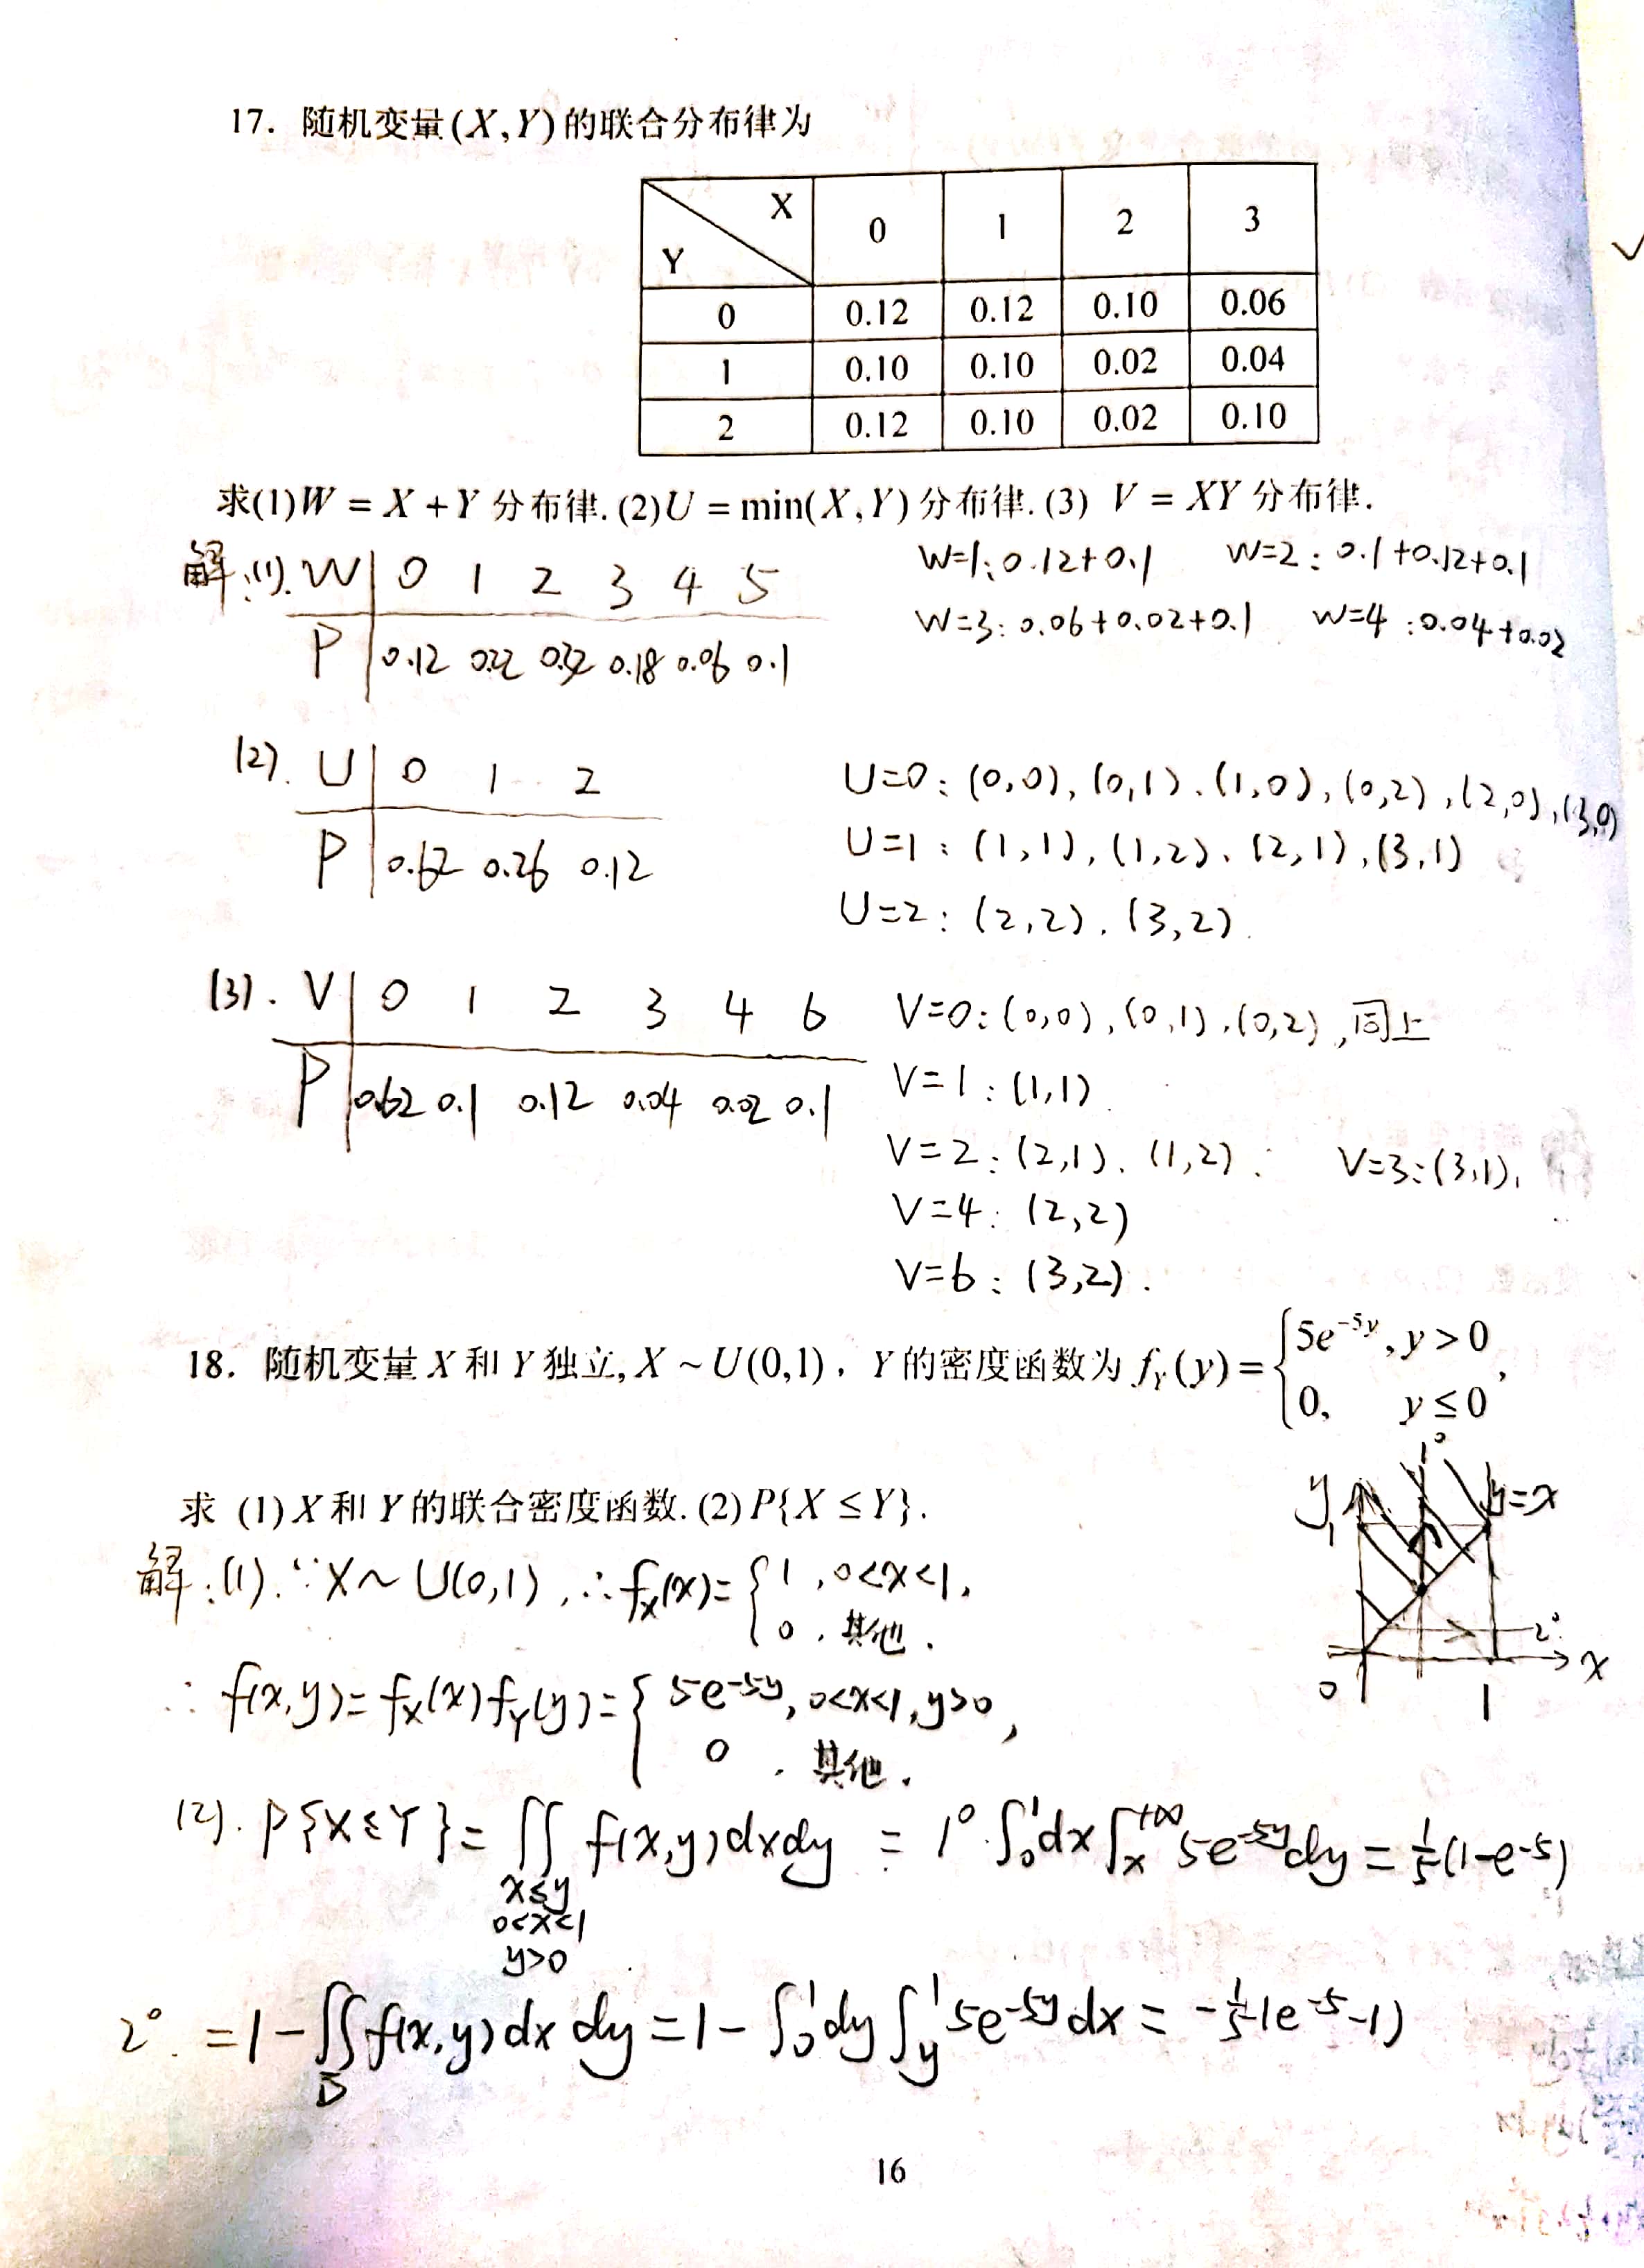 17. 随机变量(X,Y)的联合分布律为
X
Y
0 1 2 3
0 0.12 0.12 0.10 0.06
1 0.10 0.10 0.02 0.04
2 0.12 0.10 0.02 0.10
求(1)W = X + Y 分布律. (2)U = min(X,Y) 分布律. (3) V = XY 分布律.
解:(1). W 0 1 2 3 4 5
P 0.12 0.22 0.32 0.18 0.06 0.1
W=1: 0.12+0.1 W=2: 0.1+0.12+0.1
W=3: 0.06+0.02+0.1 W=4: 0.04+0.02
(2). U 0 1 2
P 0.62 0.26 0.12
U=0: (0,0), (0,1), (1,0), (0,2), (2,0), (3,0)
U=1: (1,1), (1,2), (2,1), (3,1)
U=2: (2,2), (3,2)
(3). V 0 1 2 3 4 6
P 0.62 0.1 0.12 0.04 0.02 0.1
V=0: (0,0), (0,1), (0,2), 同上
V=1: (1,1)
V=2: (2,1), (1,2). V=3: (3,1),
V=4: (2,2)
V=6: (3,2).
18. 随机变量 X 和 Y 独立, X ~ U(0,1), Y 的密度函数为 f_Y(y) = { 5e^{-5y}, y > 0
0, y ≦ 0 ,
求 (1) X 和 Y 的联合密度函数. (2) P{X ≤ Y}.
y 1 1° y=x
2°
0 1 x
解:(1). ∵X~U(0,1), ∴f_X(x)= { 1, 0<x<1,
0, 其他.
∴ f(x,y)=f_X(x)f_Y(y)= { 5e^{-5y}, 0<x<1, y>0,
0, 其他.
(2). P{X≤Y}= ∬ f(x,y)dxdy = 1°. ∫_0^1 dx ∫_x^{+∞} 5e^{-5y}dy = 1/5(1-e^{-5})
x≤y
0<x<1
y>0
2°. =1-∬_D f(x,y)dxdy=1-∫_0^1 dy ∫_y^1 5e^{-5y}dx = -1/5(e^{-5}-1)
16